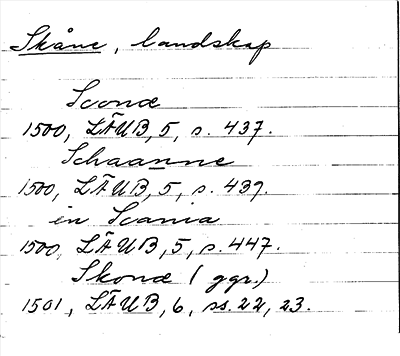 Skåne, landskap
Sconæ
1500, LÄUB, 5, s. 437.
Schaanne
1500, LÄUB, 5, s. 439.
in Scania
1500, LÄUB, 5, s. 447.
Skonæ (ggr.)
1501, LÄUB, 6, ss. 22, 23.